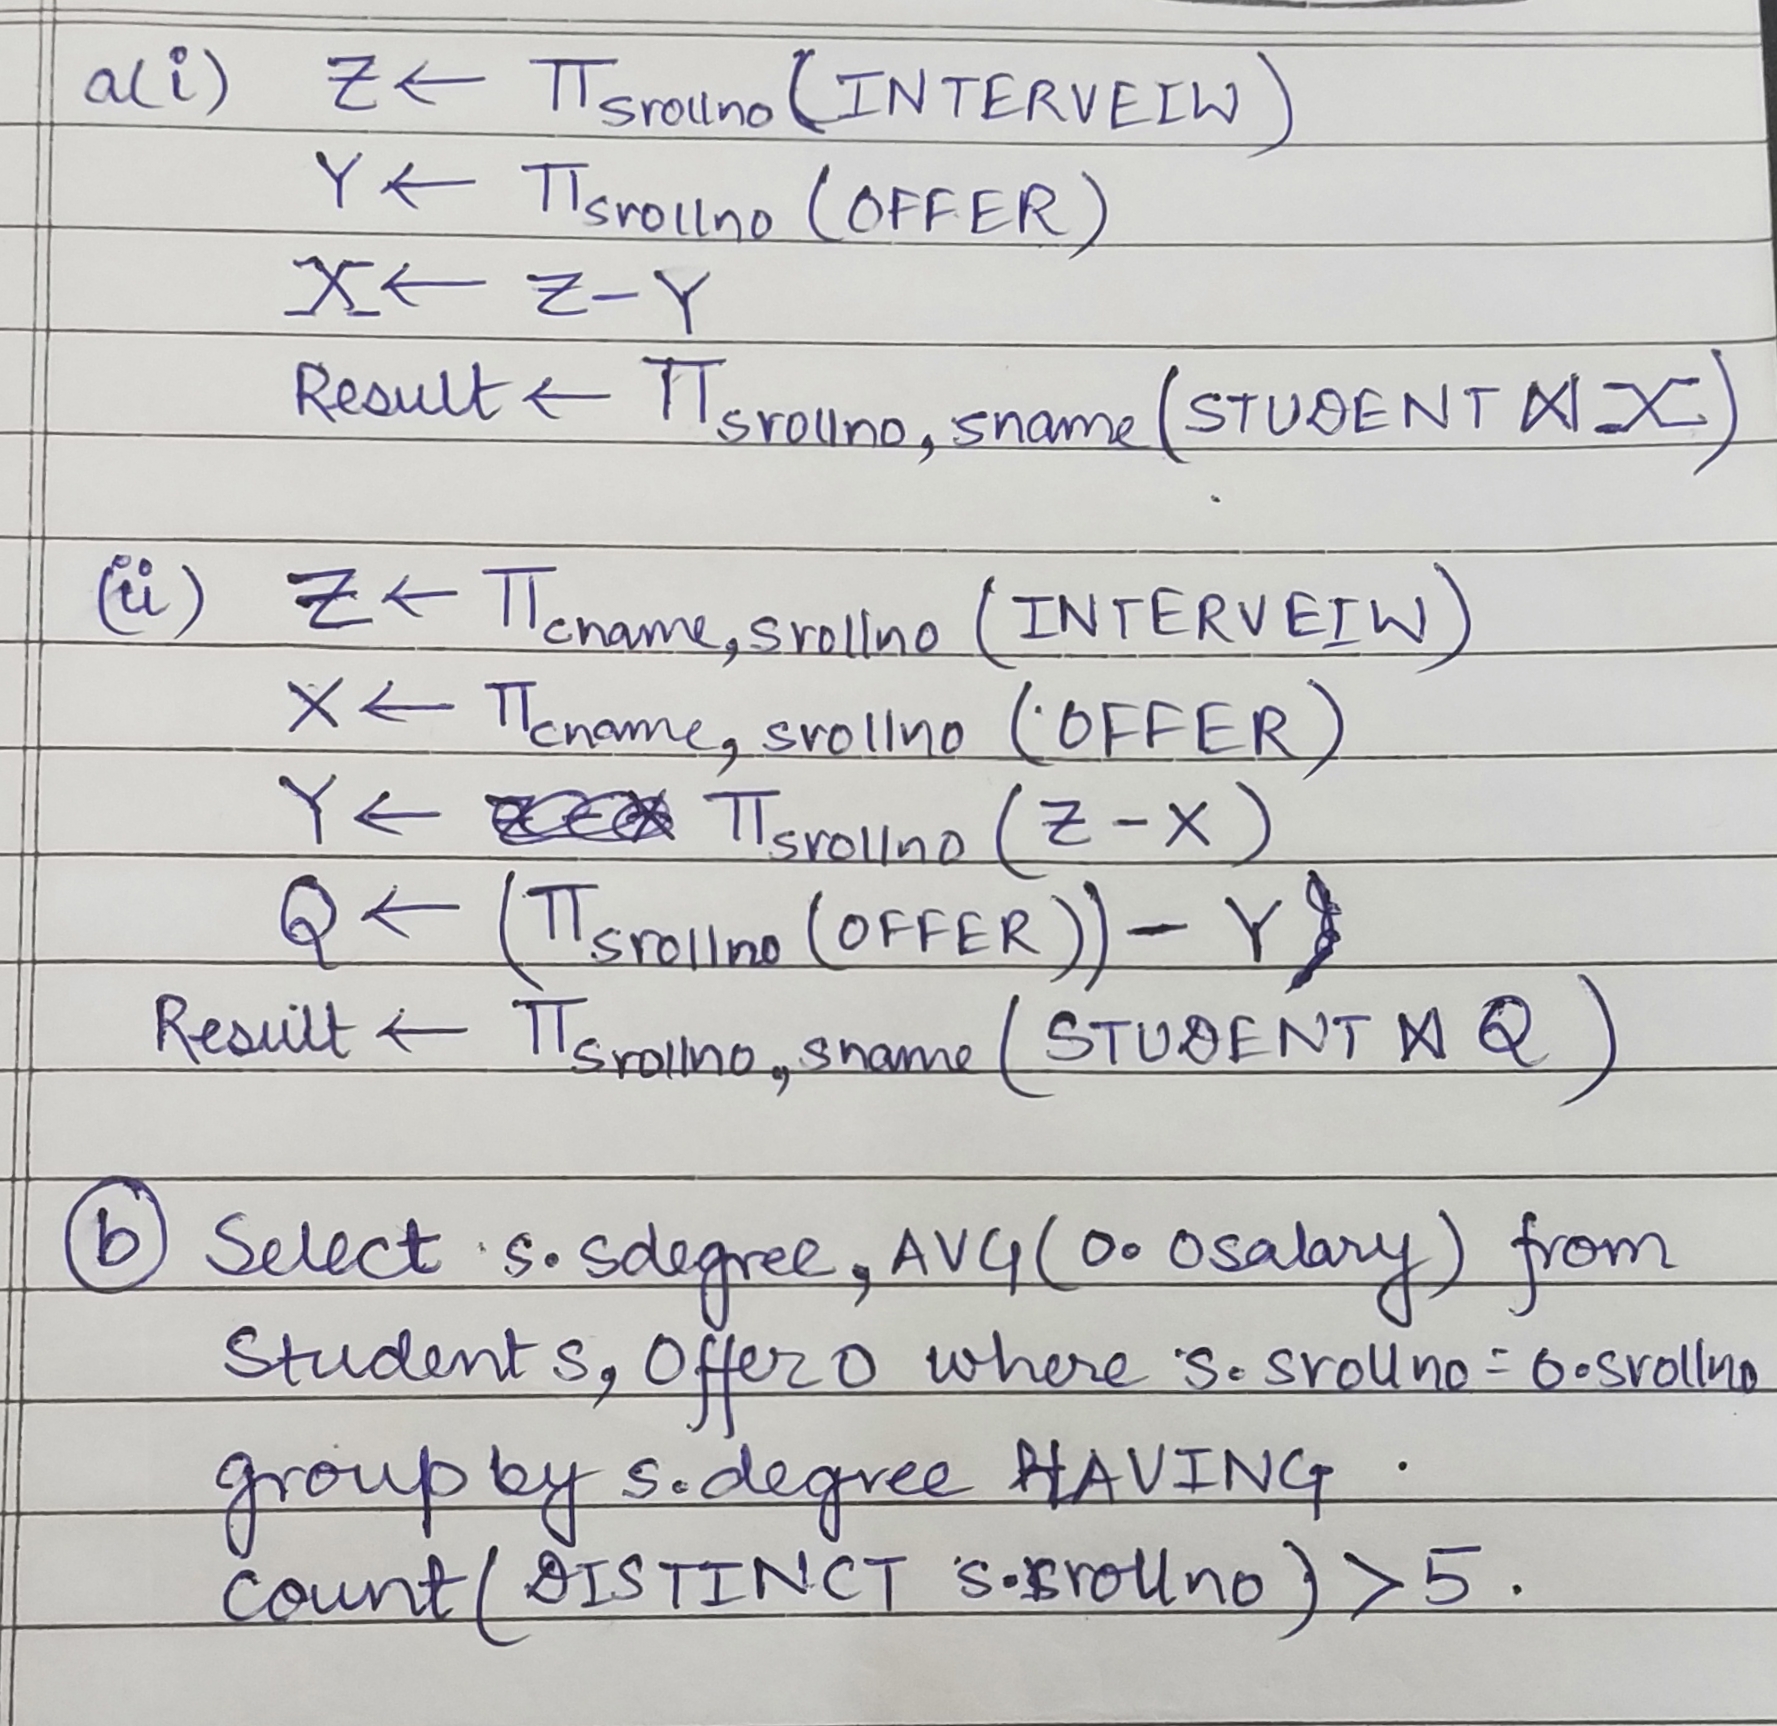 a(i) Z ← π srollno (INTERVEIW)
Y ← π srollno (OFFER)
X ← Z - Y
Result ← π srollno, sname (STUDENT ⋈ X)
(ii) Z ← π cname, srollno (INTERVEIW)
X ← π cname, srollno (OFFER)
Y ← π srollno (Z - X)
Q ← (π srollno (OFFER)) - Y
Result ← π srollno, sname (STUDENT ⋈ Q)
(b) Select s.sdegree, AVG(o.osalary) from
Student s, Offer o where s.srollno = o.srollno
group by s.degree HAVING
count(DISTINCT s.srollno) > 5.